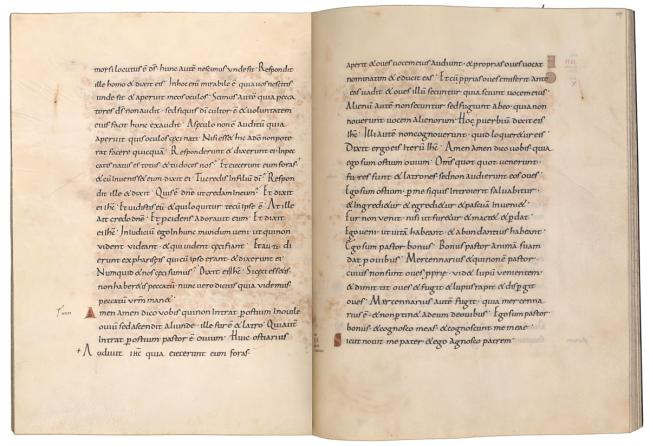 moysi locutus ē dſ· hunc autē neſcimus unde ſit· Reſpondit
ille homo & dixit eiſ· In hoc enī mirabile ē quia uoſ neſcitiſ
unde ſit & aperuit meoſ oculoſ· Scimuſ autē quia pecca
toreſ dſ non audit· ſed ſiquiſ dī cultor ē & uoluntatem
eiuſ facit hunc exaudit· A ſeculo non ē auditū quia
aperuit quiſ oculoſ ceci nati· Niſi eſſ& hic a dō non pote
rat facere quicquā· Reſponderunt & dixerunt ei· In pec
catiſ natuſ eſ totuſ· & tu doceſ noſ· Et eiecerunt eum foraſ·
& cū inueniſſ& eum· dixit ei· Tu crediſ in filiū dī· Reſpon
dit ille & dixit· Quiſ ē dn̄e ut credam in eum· Et dixit
ei ihc̄· Et uidiſti eū· & qui loquitur tecū ipſe ē· At ille
ait credo dn̄e· Et pcidenſ adorauit eum· Et dixit
ei ihc̄· In iudiciū ego in hunc mundum ueni· ut qui non
uident uideant· & qui uident ceci fiant· Et au di
erunt ex phariſeiſ qui cū ipſo erant· & dixerunt ei·
Numquid & noſ ceci ſumuſ· Dixit eiſ ihc̄· Si ceci eſſetiſ
non haberetiſ peccatū· nunc uero diciſtiſ quia uidemuſ
peccatū urm̄ man&·
Amen amen dico uobiſ qui non intrat p oſtium in ouile
ouiū ſed aſcendit aliunde· ille fur ē & latro· Qui autē
intrat p oſtium paſtor ē ouium· Huic oſtiariuſ
+ Audiuit ihc̄ quia eiecerunt eum foraſ·
aperit & oueſ uocem eiuſ audiunt· & propriaſ oueſ uocat
nominatim & educit eaſ· Et cū ppriaſ oueſ emiſerit ante
eaſ uadit· & oueſ illū ſecuntur quia ſciunt uocem eiuſ
Alienū autē non ſecuntur ſed fugiunt ab eo· quia non
nouerunt uocem alienorum· Hoc puerbiū dixit eiſ
ihc̄· Illi autē non cognouerunt· quid loquer&ur eiſ·
Dixit ergo eiſ iterū ihc̄· Amen amen dico uobiſ quia
ego ſum oſtium ouium· Omſ quot quot uenerunt
fureſ ſunt & latroneſ· ſed non audierunt eoſ oueſ·
Ego ſum oſtium· p me ſiquiſ introierit ſaluabitur·
& ingredi&ur & egredi&ur & paſcua inueni&·
Fur non uenit· niſi ut fur&ur & mact& & pdat·
Ego ueni ut uitā habeant· & abundantiuſ habeant·
Ego ſum paſtor bonuſ· Bonuſ paſtor animā ſuam
dat p ouibuſ· Mercennariuſ & qui non ē paſtor·
cuiuſ non ſunt oueſ pprię· uid& lupū uenientem·
& dimittit oueſ & fugit· & lupuſ rapit & diſpgit
oueſ· Mercennariuſ autē fugit· quia mercenna
riuſ ē· & non ptin& ad eum de ouibuſ· Ego ſum paſtor
bonuſ· & cognoſco meaſ· & cognoſcunt me meę·
Sicut nouit me pater· & ego agnoſco patrem·